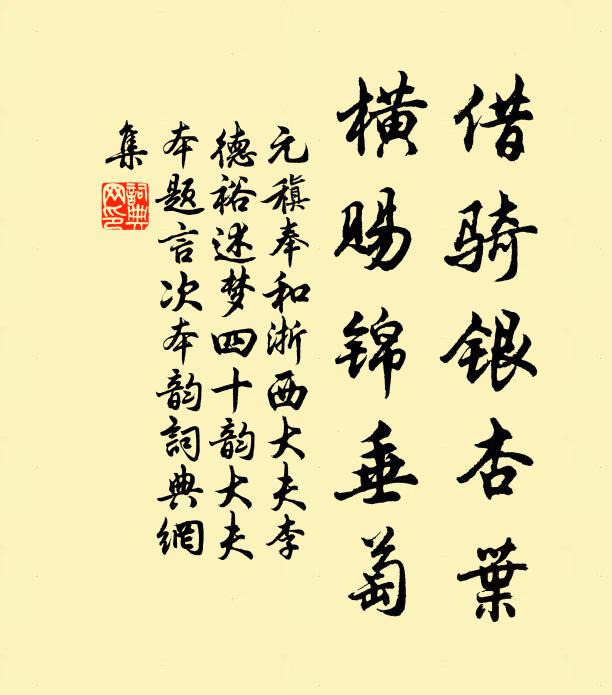 借骑银杏葉
横赐锦垂萄
元稹奉和浙西大夫李
德裕述梦四十韵大夫
本题言次本韵詞典網
集
詞典网印